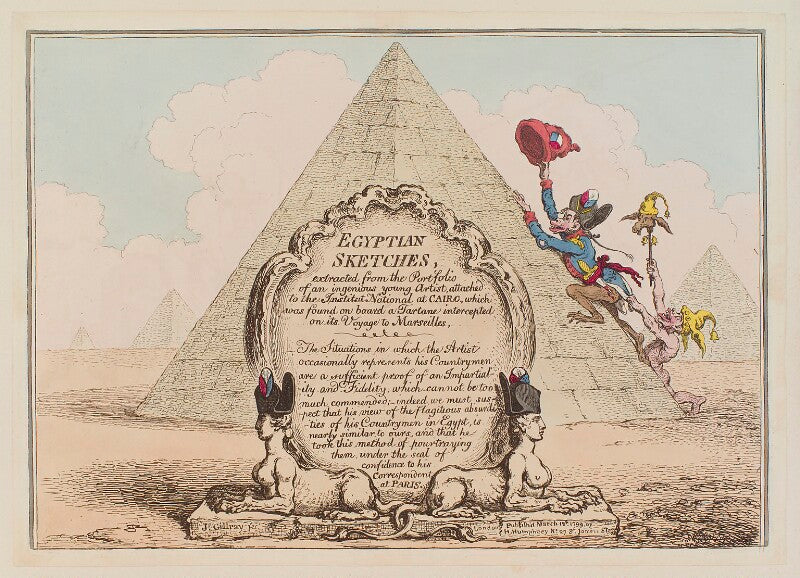 EGYPTIAN
SKETCHES,
extracted from the Portfolio
of an ingenious young Artist, attached
to the Institut National at CAIRO, which
was found on board a Tartane intercepted
on its Voyage to Marseilles,
The Situations in which the Artist
occasionally represents his Countrymen
are a sufficient proof of an Impartial-
-ity and Fidelity, which cannot be too
much commended,- indeed we must sus-
pect that his view of the flagitious absurdi-
-ties of his Countrymen in Egypt, is
nearly similar to ours, and that he
took this method of pourtraying
them, under the seal of
confidence to his
Correspondent
at PARIS.
Js. Gillray
London, Publish'd March 12th 1799, by
H. Humphrey No. 27 St. James's